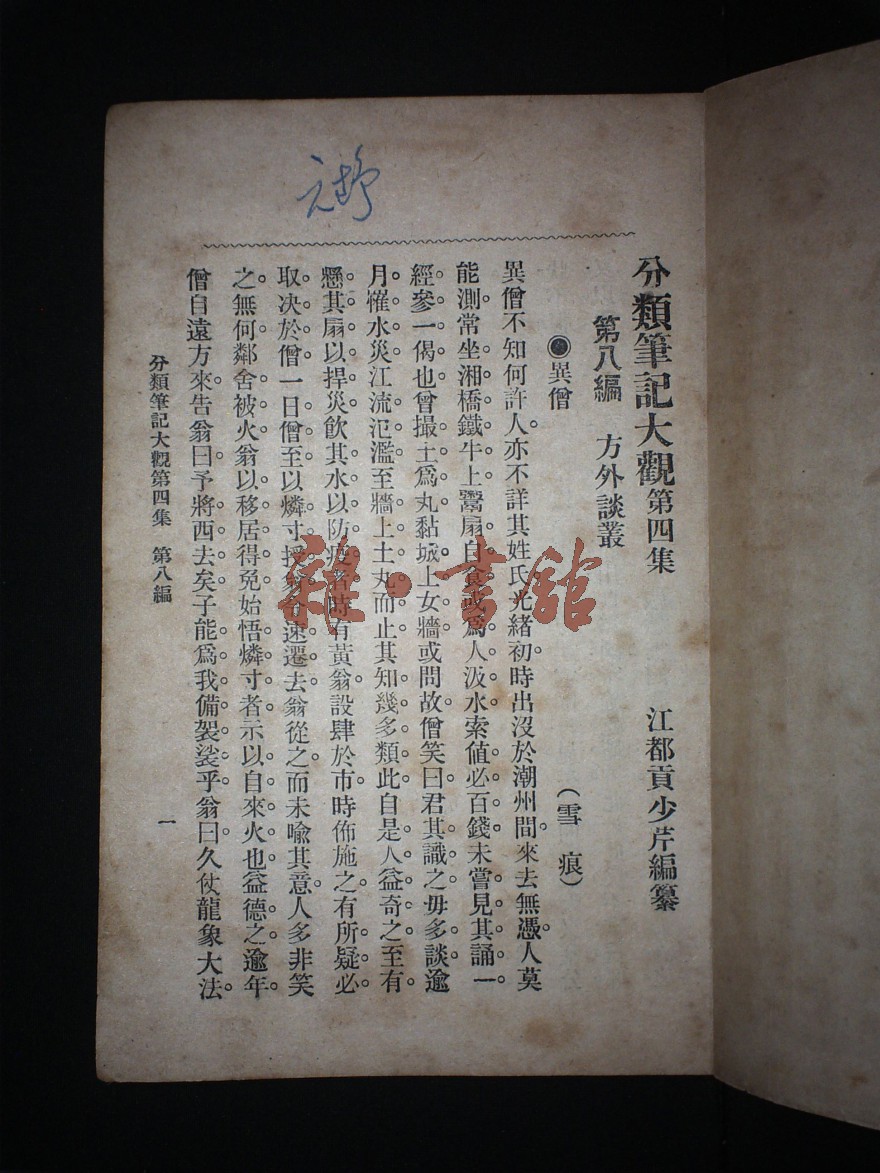 分類筆記大觀第四集 江都貢少芹編纂
第八編 方外談叢
◉異僧 (雪痕)
異僧不知何許人。亦不詳其姓氏。光緒初時出沒於潮州間。來去無憑。人莫
能測。常坐湘橋鐵牛上。鬻扇自食。或爲人汲水。索值必百錢。未嘗見其誦一
經參一偈也。曾撮土爲丸。黏城上女牆。或問故。僧笑曰。君其識之。毋多談。逾
月。罹水災。江流氾濫。至牆上土丸而止。其知幾多類此。自是人益奇之。至有
懸其扇以捍災。飲其水以防疫者。時有黃翁設肆於市。時佈施之。有所疑必
取决於僧。一日僧至。以燐寸授翁。令速遷去。翁從之而未喩其意。人多非笑
之。無何鄰舍被火。翁以移居得免。始悟燐寸者。示以自來火也。益德之。逾年。
僧自遠方來。告翁曰。予將西去矣。子能爲我備袈裟乎。翁曰。久仗龍象大法。
分類筆記大觀第四集 第八編
一
雜·書館